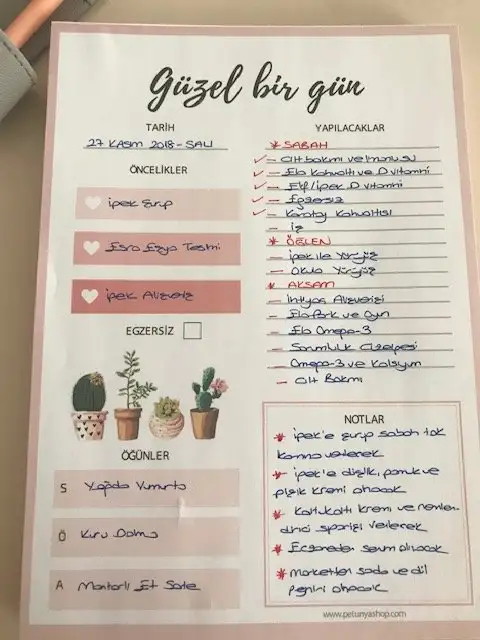 Güzel bir gün
TARİH
27 KASIM 2018 - SALI
ÖNCELİKLER
ipek şurup
Esra Eşya Teslimi
ipek Alışveriş
EGZERSİZ
ÖĞÜNLER
S Yağda Yumurta
Ö Kuru Dolma
A Mantarlı Et Sote
YAPILACAKLAR
* SABAH
- Cilt bakımı ve limonlu su
- Ela Kahvaltı ve D vitamini
- Elif/ipek D vitamini
- Egzersiz
- Karatay Kahvaltısı
- iş
* ÖĞLEN
- ipek ile Yürüyüş
- Okula Yürüyüş
* AKŞAM
- ihtiyaç Alışverişi
- Ela Park ve Oyun
- Ela Omega-3
- Sorumluluk Çizelgesi
- Omega-3 ve Kalsiyum
- Cilt Bakımı
NOTLAR
* ipek'e şurup sabah tok
karnına verilecek
* ipek'e dişlik, pamuk ve
pişik kremi alınacak
* Koltukaltı kremi ve nemlen-
dirici siparişi verilecek
* Eczaneden serum alınacak
* Marketten soda ve dil
peyniri alınacak
www.petunyashop.com